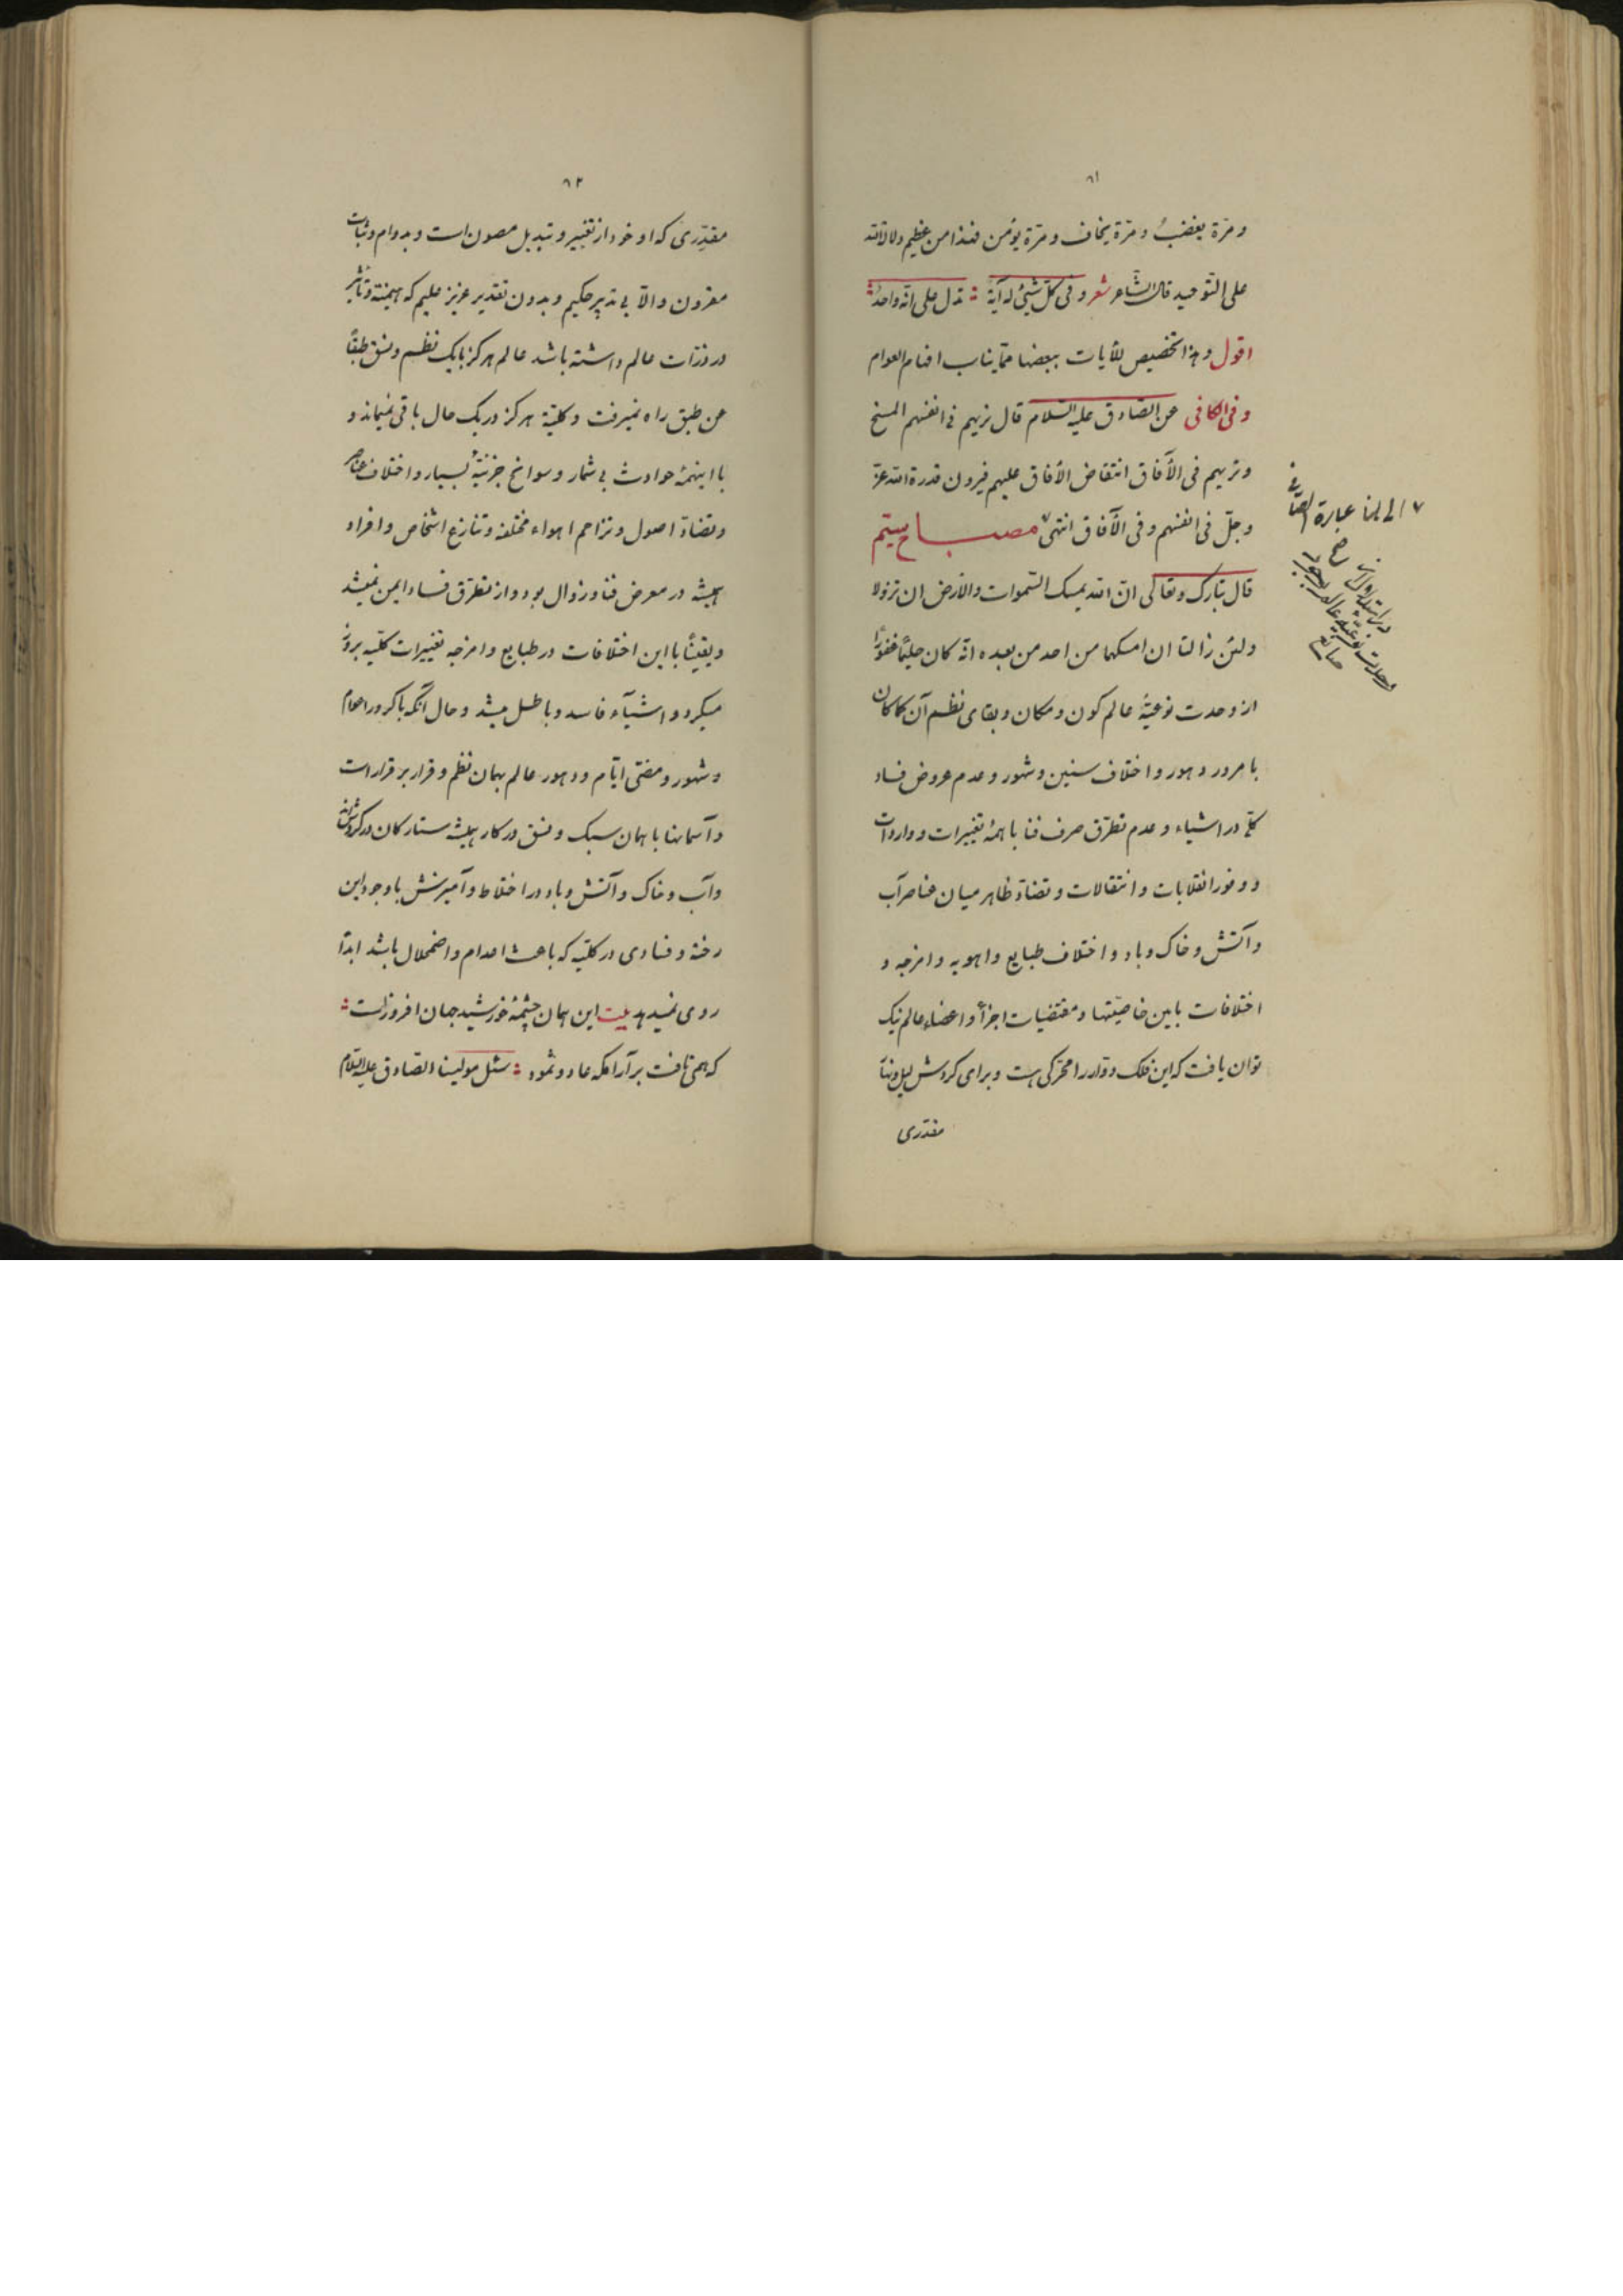 ۸۱
ومرّة یغضب ومرّة یخاف ومرّة یؤمن فهذا من عظیم دلالة الله
علی التوحید قال الشاعر شعر وفی کلّ شیئ له آیة : تدل علی انّه واحدٌ :
اقول وهذا تخصیص للآیات ببعضها ممّا یناسب افهام العوام
وفی الکافی عن الصّادق علیه السّلام قال نریهم فی انفسهم المسخ
ونریهم فی الآفاق انتقاض الآفاق علیهم فیرون قدرة الله عزّ
وجلّ فی انفسهم وفی الآفاق انتهی مصباح بیستم
قال تبارک وتعالی انّ الله یمسک السّموات والارض ان تزولا
ولئن زالتا ان امسکهما من احد من بعده انّه کان حلیماً غفوراً
از وحدت نوعیّهٔ عالم کون و مکان و بقای نظم آن کماکان
با مرور دهور و اختلاف سنین و شهور و عدم عروض فساد
کلّی در اشیاء و عدم تطرّق صرف فنا با همهٔ تغییرات و واردات
و وفور انقلابات و انتقالات و تضادّ ظاهر میان عناصر آب
و آتش و خاک و باد و اختلاف طبایع و اهویه و امزجه و
اختلافات باین خاصیّتها و مقتضیات اجزأ و اعضاء عالم نیک
توان یافت که این فلک دوّار را محرّکی هست و برای کردش لیل و نهار
مقدّری
الی هنا عبارة الصافی
صح
در استدلال
وحدت نوعیّه عالم بوجود
صانع
۸۲
مقدّری که او خود از تغییر و تبدیل مصون است و بدوام و ثبات
مقرون والّا بی تدبیر حکیم و بدون تقدیر عزیز علیم که هیمنه و تأثیر
در ذرّات عالم داشته باشد عالم هرکز بایک نظم و نسق طبقاً
عن طبق راه نمیرفت و کلیّة هرکز در یک حال باقی نمیماند و
با اینهمهٔ حوادث بی شمار و سوانح جزئیّهٔ بسیار و اختلاف عناصر
و تضادّ اصول و تزاحم اهواء مختلفه و تنازع اشخاص و افراد
همیشه در معرض فنا و زوال بود و از تطرّق فساد ایمن نمیشد
و یقیناً با این اختلافات در طبایع و امزجه تغییرات کلّیه بروز
میکرد و اشیآء فاسد و باطل میشد و حال آنکه با کرور اعوام
و شهور و مضیّ ایّام و دهور عالم بهمان نظم و قرار برقرار است
و آسمانها با همان سبک و نسق در کار همیشه ستارکان در کردش اند
و آب و خاک و آتش و باد در اختلاط و آمیزش با وجود این
رخنه و فسادی در کلّیه که باعث اعدام و اضمحلال باشد ابداً
روی نمیدهد بیت این همان چشمهٔ خورشید جهان افروز است :
که همی تافت بر آرامکه عاد و ثمود : سئل مولینا الصّادق علیه السّلام